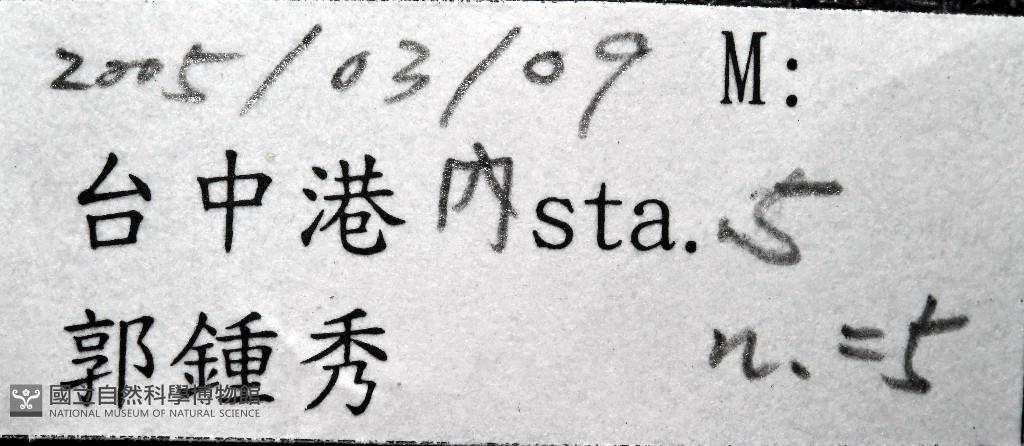 2005/03/09 M:
台中港內sta.5
郭鍾秀 n.=5
國立自然科學博物館
NATIONAL MUSEUM OF NATURAL SCIENCE